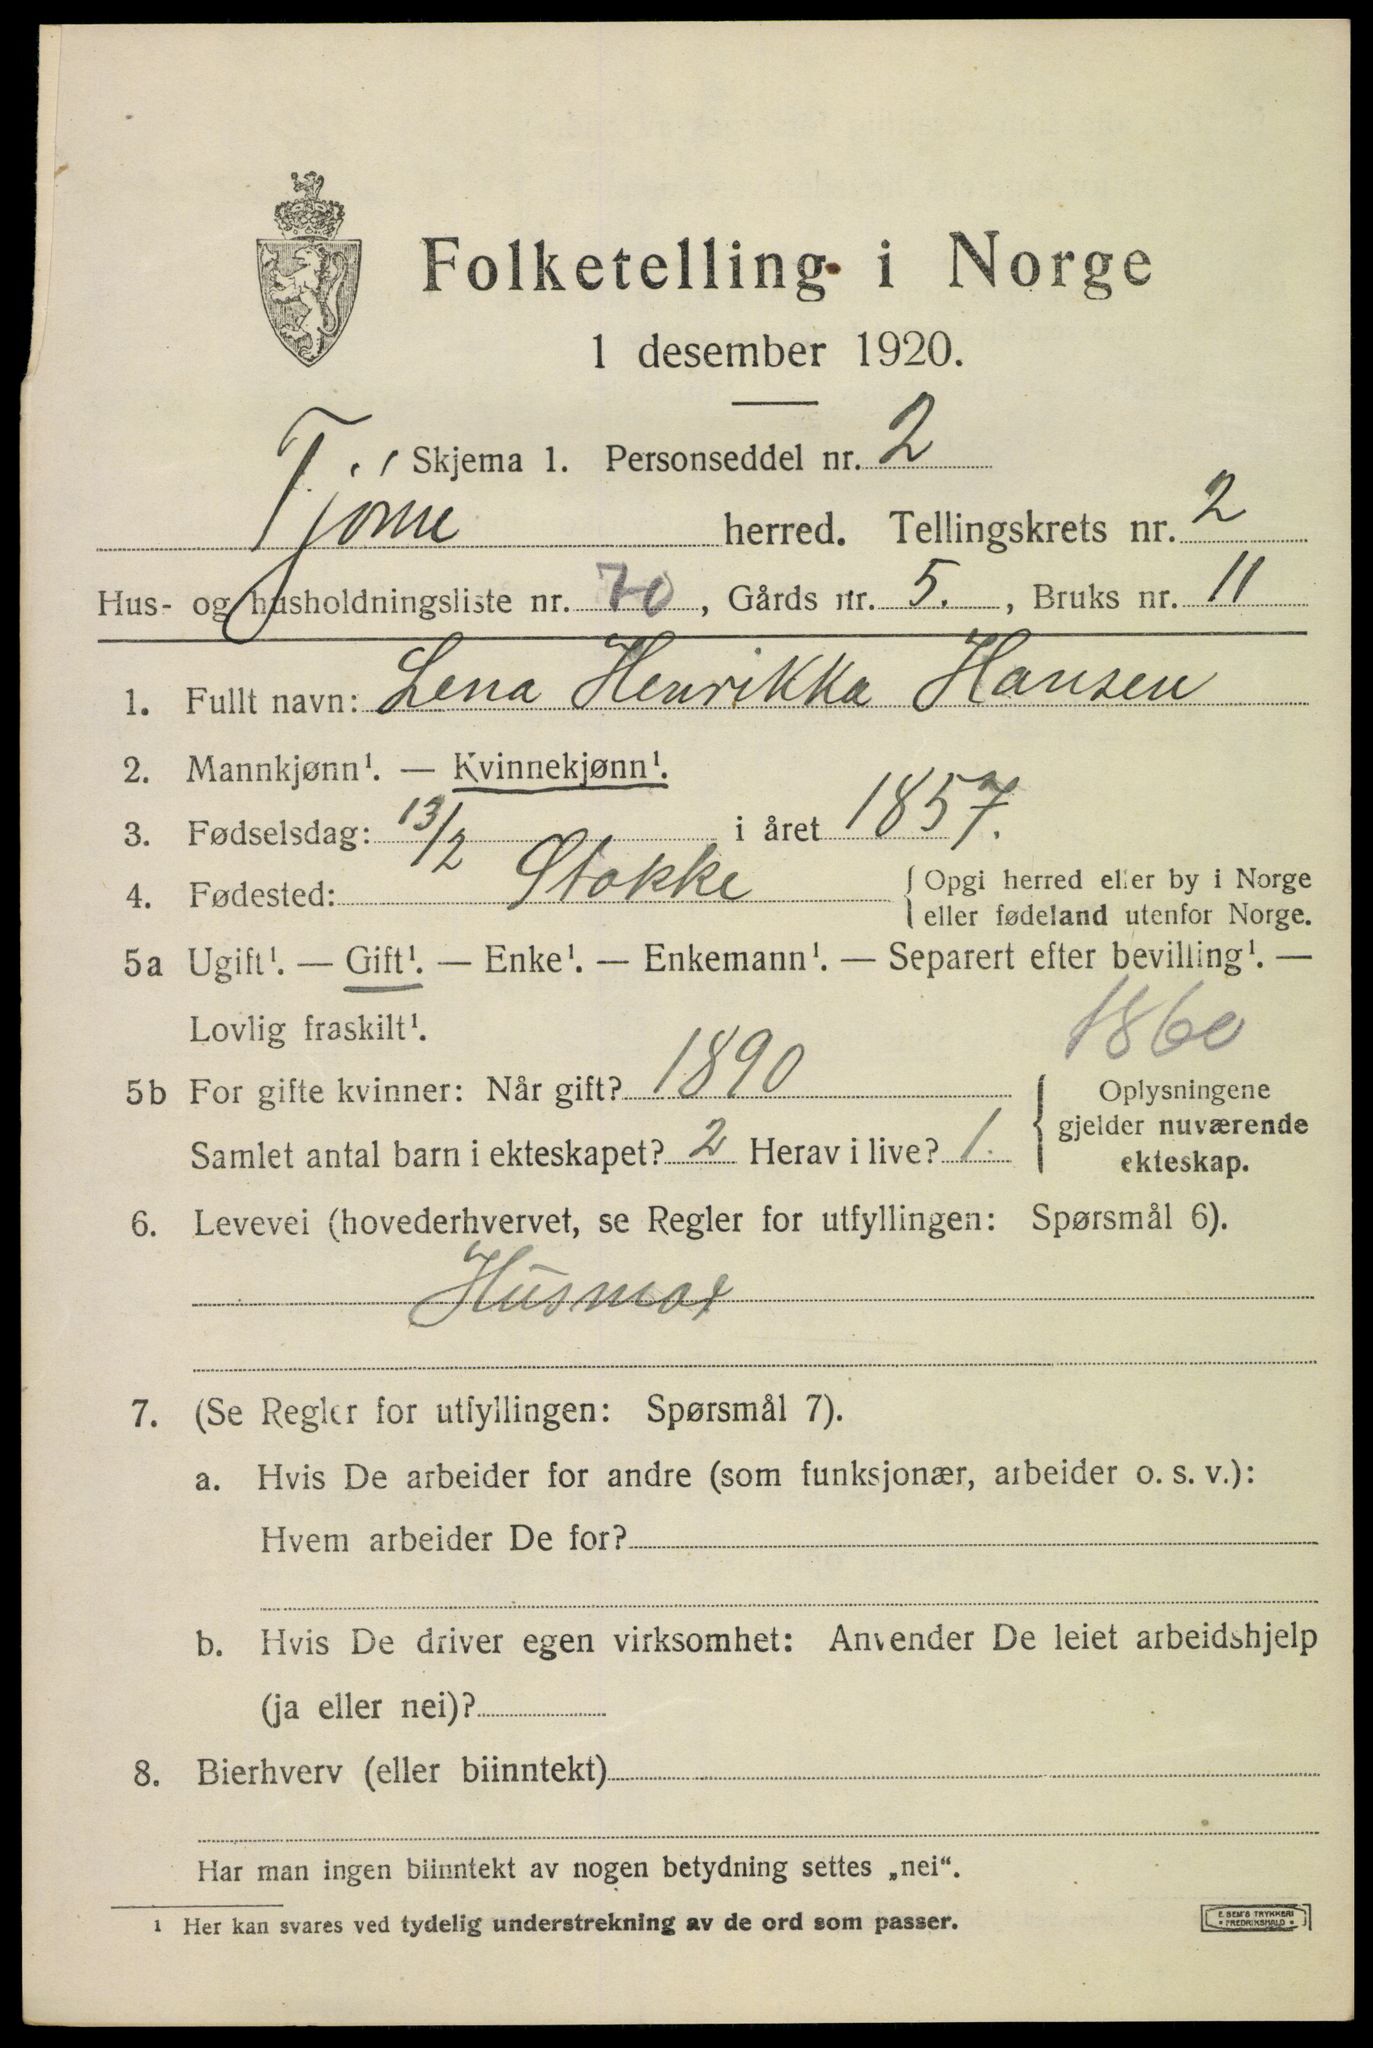 Folketelling i Norge
1 desember 1920.
Skjema 1. Personseddel nr. 2
Tjøme herred. Tellingskrets nr. 2
Hus- og husholdningsliste nr. 70, Gårds nr. 5., Bruks nr. 11
1. Fullt navn: Lena Henrikka Hansen
2. Mannkjønn¹. — Kvinnekjønn¹.
3. Fødselsdag: 13/2 i året 1857.
4. Fødested: Stokke { Opgi herred eller by i Norge
eller fødeland utenfor Norge.
5a Ugift¹. — Gift¹. — Enke¹. — Enkemann¹. — Separert efter bevilling¹. —
Lovlig fraskilt¹.
1860
5b For gifte kvinner: Når gift? 1890
Samlet antal barn i ekteskapet? 2 Herav i live? 1.
{ Oplysningene
gjelder nuværende
ekteskap.
6. Levevei (hovederhvervet, se Regler for utfyllingen: Spørsmål 6).
Husmor
7. (Se Regler for utfyllingen: Spørsmål 7).
a. Hvis De arbeider for andre (som funksjonær, arbeider o. s. v.):
Hvem arbeider De for?
b. Hvis De driver egen virksomhet: Anvender De leiet arbeidshjelp
(ja eller nei)?
8. Bierhverv (eller biinntekt)
Har man ingen biinntekt av nogen betydning settes „nei“.
¹ Her kan svares ved tydelig understrekning av de ord som passer.
E. SEM'S TRYKKERI
• FREDRIKSHALD •